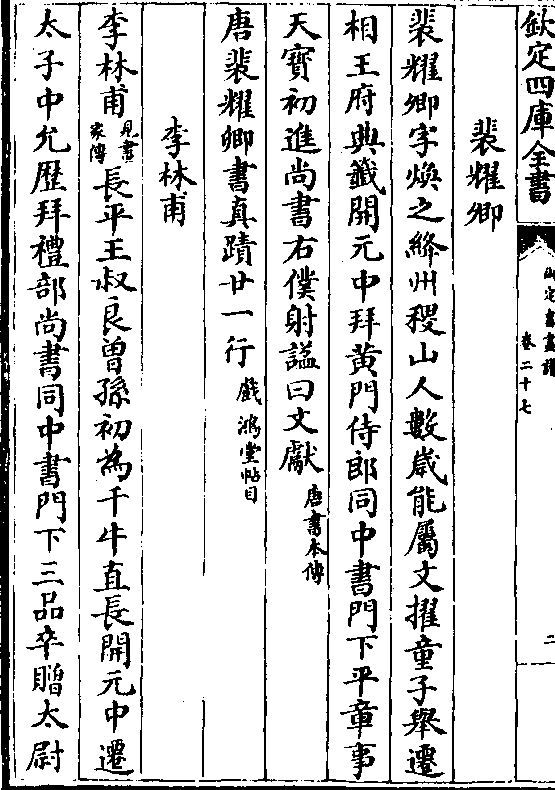 欽定四庫全書
御定書畫譜
卷二十七
二
裴耀卿
裴耀卿字煥之絳州稷山人數歲能屬文擢童子舉遷
相王府典籖開元中拜黃門侍郎同中書門下平章事
天寶初進尚書右僕射謚曰文獻唐書本傳
唐裴耀卿書真蹟廿一行戲鴻堂帖目
李林甫
李林甫見畫家傳長平王叔良曾孫初為千牛直長開元中遷
太子中允歴拜禮部尚書同中書門下三品卒贈太尉